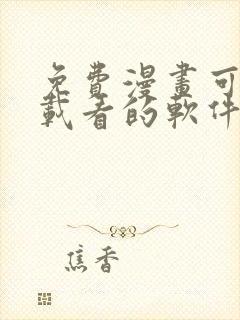 免費漫畫可
載看的軟件
焦香